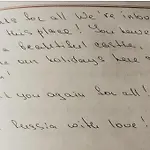 for all We're
this place! You have
a beautiful castle,
our holidays here
!
you again for all!
Russia with love!